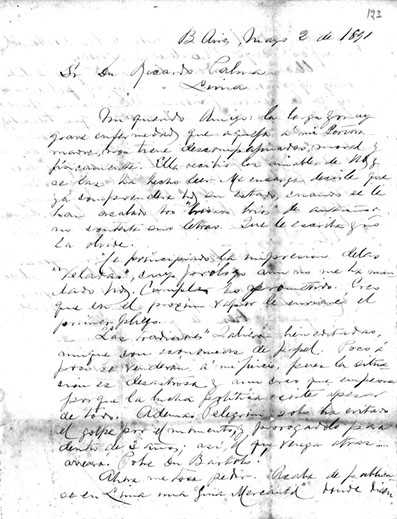 123
B Aires, Mayo 2 de 1891
Sr Dn Ricardo Palma
Lima
Mi querido Amigo: La larga y muy
grave enfermedad que aqueja a mi
madre, nos tiene moral y
físicamente. Ella recibió la amable de Ud y
se la ha hecho leer. Me encarga decirle que
ya comprenderá Ud su estado, cuando se le
han acabado los de
no contesta sus letras. Que le escriba y no
la olvide.
He principiado la impresion de las
"Veladas", cuyo prólogo aun no me ha man
dado Ud, Cumpla lo prometido. Creo
que en el proximo vapor le enviaré el
primer pliego.
Las tradiciones bien editadas,
aunque con economias de papel. Poco á
poco se venderán, á mi juicio, pues la situa
cion es desastrosa y aun creo que empeora
porque la lucha política
de todo. Además, Pelegrini solo ha evitado
el golpe por el momento, y prorogado para
dentro de 3 años; asi, el que venga atras
arreará. Pobre Dn Bartolo!
Ahora me toca pedir. Acaba de publicar
se en Lima una "Guia Mercantil" donde dicen